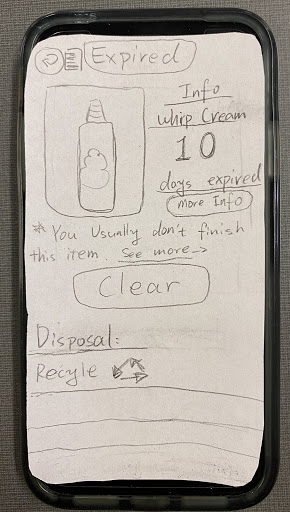 Expired
Info
Whip Cream
10
days expired
More Info
* You Usually don't finish
this item. See more->
Clear
Disposal:
Recyle